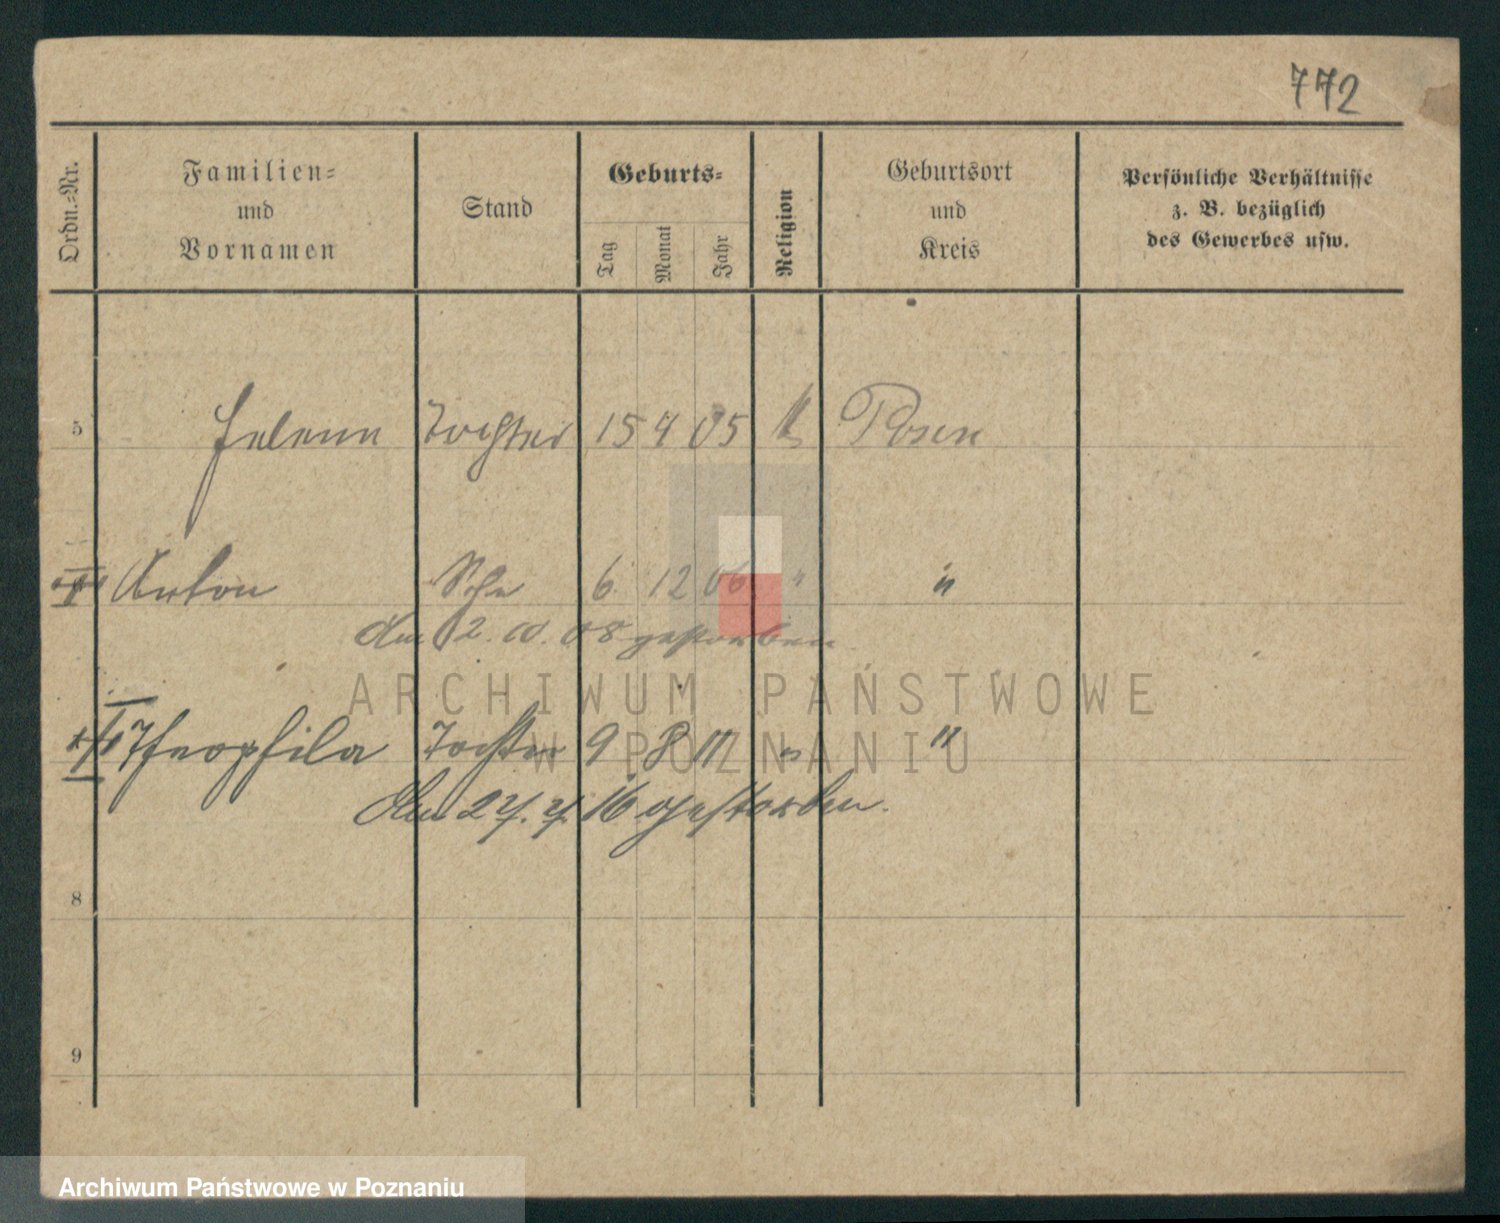 772
Ordn.-Nr.
Familien-
und
Vornamen
Stand
Geburts-
Tag
Monat
Jahr
Religion
Geburtsort
und
Kreis
Persönliche Verhältnisse
z. B. bezüglich
des Gewerbes usw.
5 Helene Tochter 15 4 05 k Posen
Anton 6 12 06 " "
Am 2. 10. 08 gestorben
ARCHIWUM PAŃSTWOWE
Theophila Tochter 9 8 11 " "
W POZNANIU
Am 27. 7. 16 gestorben.
8
9
Archiwum Państwowe w Poznaniu